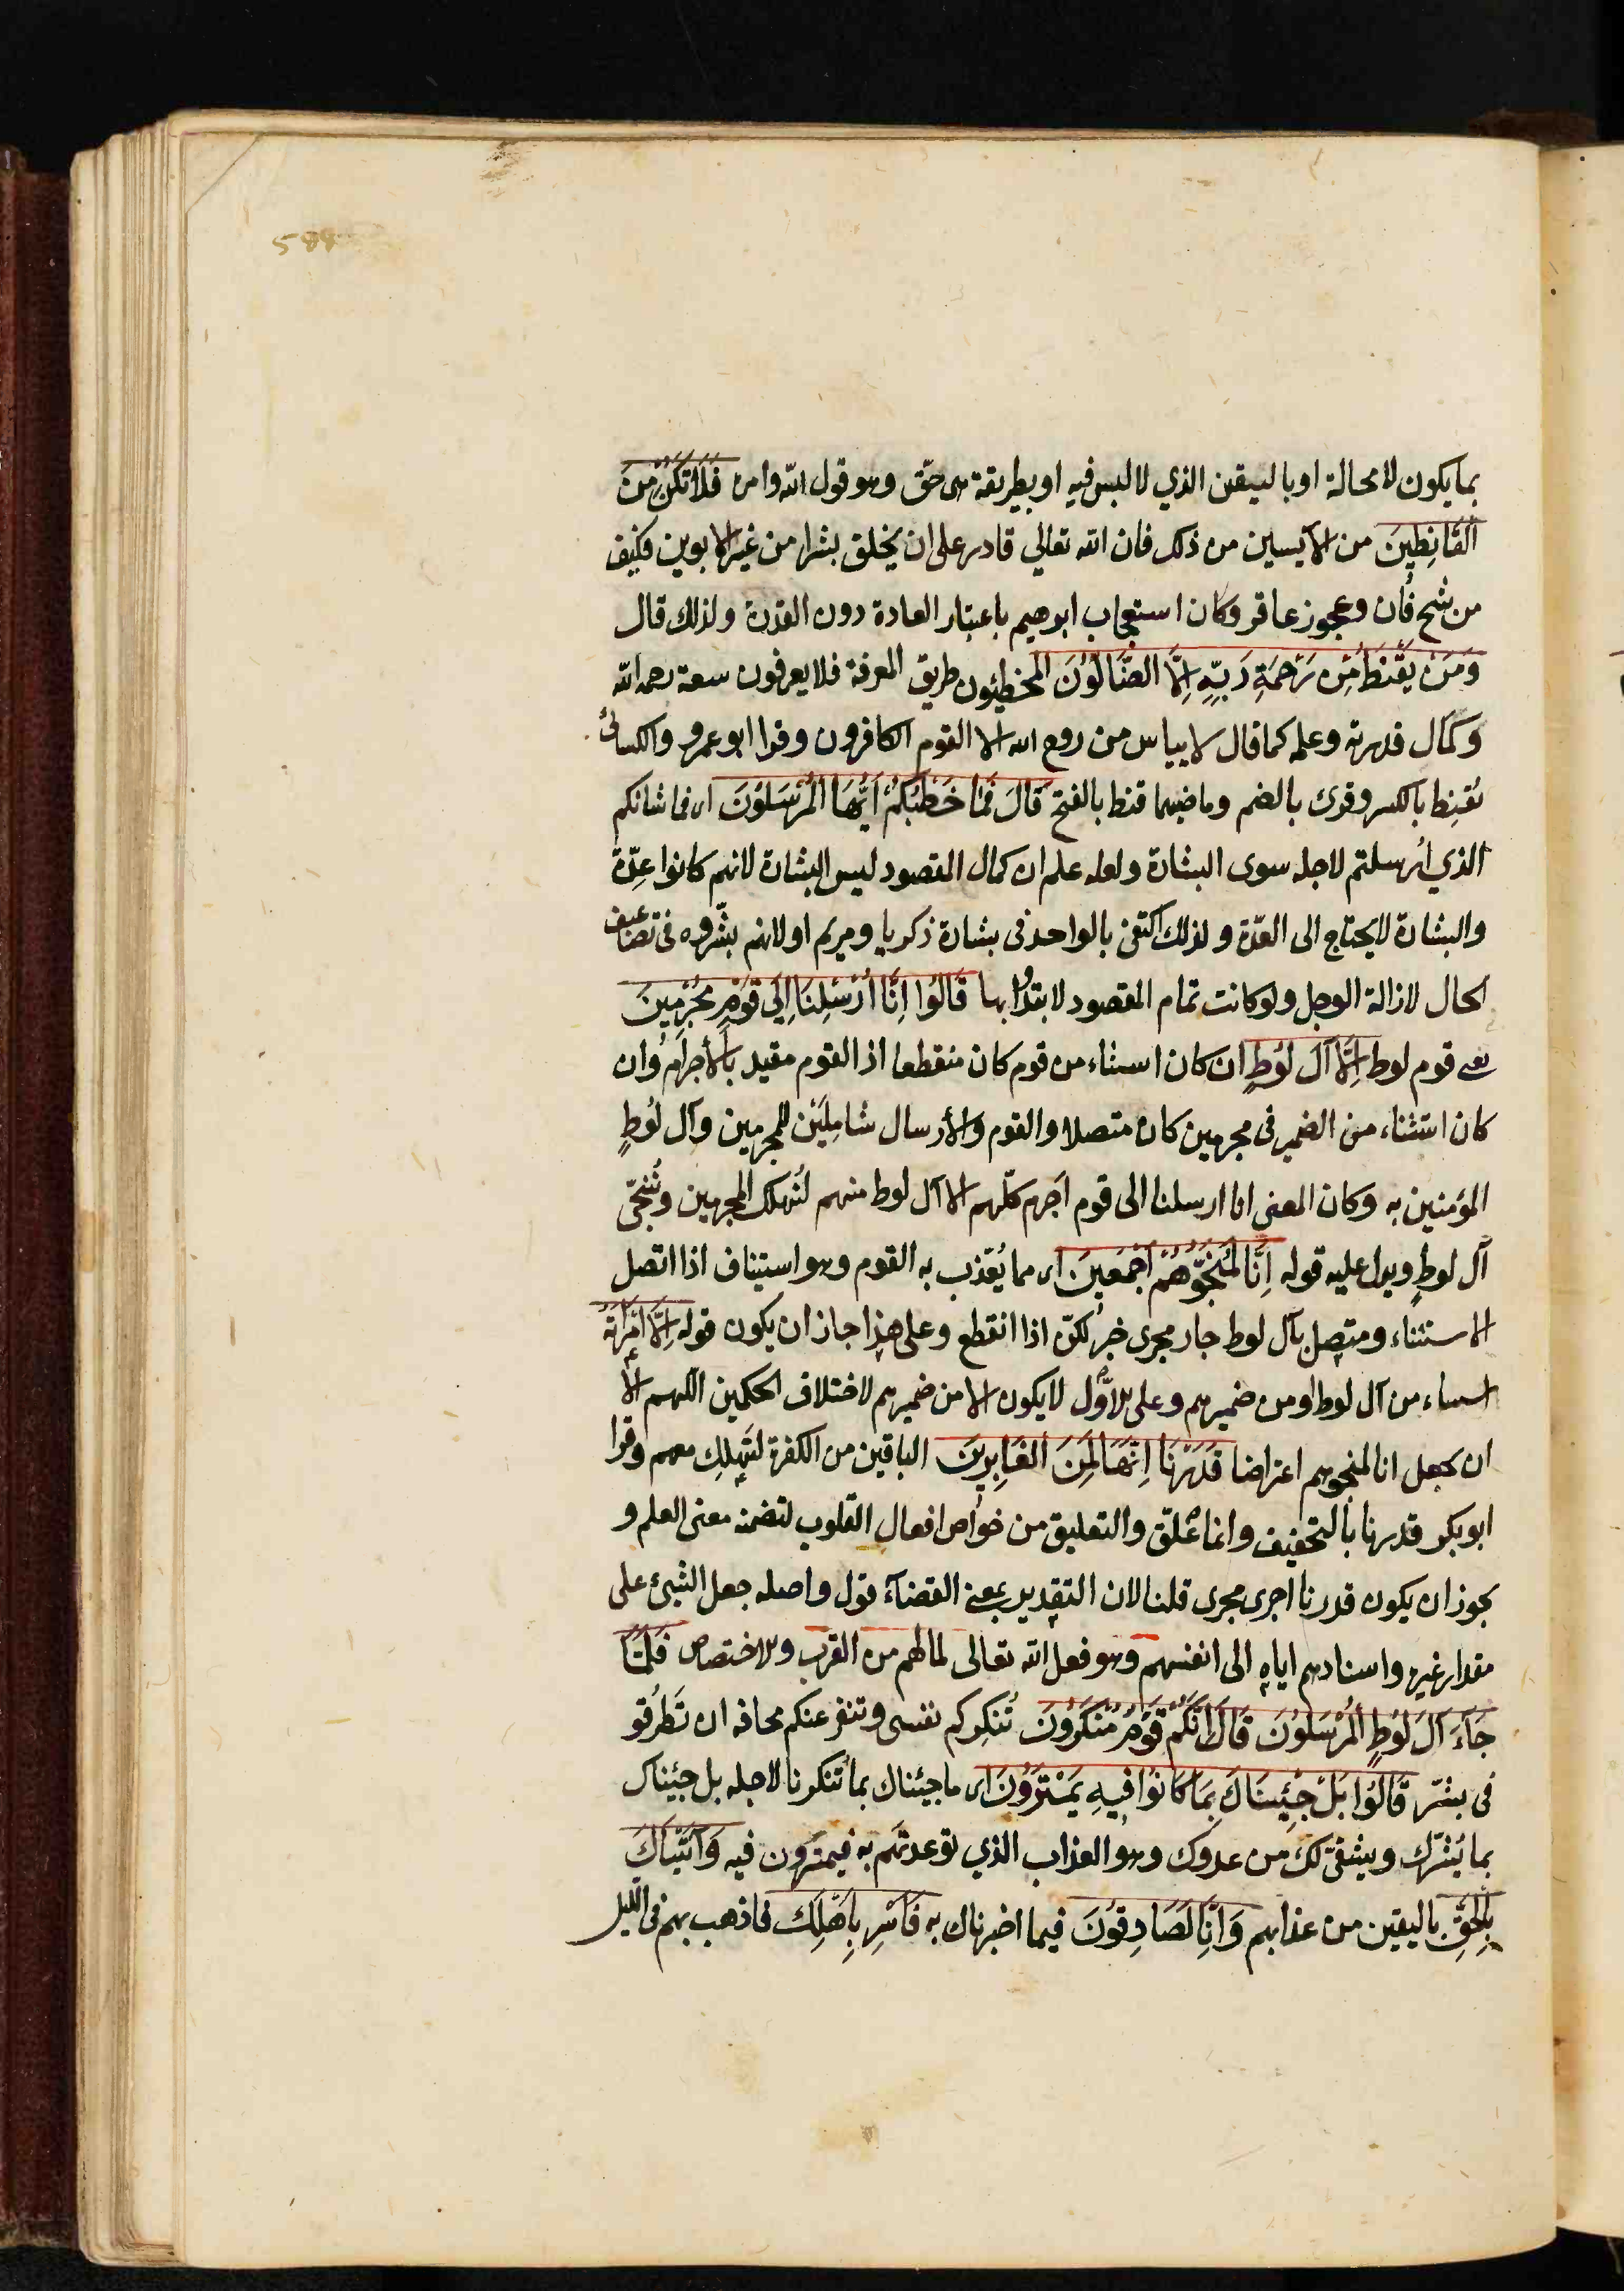 588
بما يكون لا محالة او باليقين الذي لا لبس فيه او بطريقة هى حق وهو قول الله وامره فَلَا تَكُنْ مِنَ
الْقَانِطِينَ من الآيسين من ذلك فان الله تعالي قادر على ان يخلق بشرا من غير الابوين فكيف
من شيخ فان وعجوز عاقر وكان استعجاب ابرهيم باعتبار العادة دون القدرة ولذلك قال
وَمَنْ يَقْنَطُ مِنْ رَحْمَةِ رَبِّهِ اِلَّا الضَّالُّونَ المخطئون طريق المعرفة فلا يعرفون سعة رحمة الله
وكمال قدرته وعلمه كما قال لا ييأس من روح الله الا القوم الكافرون وقرا ابو عمرو والكسائي
يقنِط بالكسر وقرئ بالضم وماضيهما قنط بالفتح قَالَ فَمَا خَطْبُكُمْ اَيُّهَا الْمُرْسَلُونَ اى فما شانكم
الذي اُرسلتم لاجله سوى البشارة ولعله علم ان كمال المقصود ليس البشارة لانهم كانوا عِدّة
والبشارة لا يحتاج الى العدّة ولذلك اكتفى بالواحد فى بشارة زكريا ومريم او لانهم بشّروه فى تضاعيف
الحال لازالة الوجل ولو كانت تمام المقصود لابتدُا بها قَالُوا اِنَّا اُرْسِلْنَا اِلَى قَوْمٍ مُجْرِمِينَ
يعنى قوم لوط اِلَّا آلَ لُوطٍ ان كان استثناء من قوم كان منقطعا اذ القوم مقيد بالأجرام وان
كان استثناء من الضمير فى مجرمين كان متصلا والقوم والأرسال شاملَيْن للمجرمين وآل لُوطٍ
المؤمنين به وكان المعنى انا ارسلنا الى قوم اَجرم كلّهم الا آل لوط منهم لنُهلك المجرمين ونُنجّى
آل لوطٍ ويدل عليه قوله اِنَّا لَمُنَجُّوهُمْ اَجْمَعِينَ اى مما يُعَذّب به القوم وهو استيناف اذا اتصل
الاستثناء ومتصل بآل لوط جار مجرى خبر لكنّ اذا انقطع وعلى هذا جاز ان يكون قوله اِلَّا امْرَاَتَهُ
استثناء من آل لوط او من ضميرهم وعلى الاوّل لا يكون الا من ضميرهم لاختلاف الحكمين اللهم الا
ان يجعل انا لمنجوهم اعتراضا قَدَرْنَا اِنَّهَا لَمِنَ الْغَابِرِينَ الباقين من الكفرة لتَهلِك معهم وقرا
ابو بكر قدرنا بالتخفيف وانما عُلّق والتعليق من خواص افعال القلوب لتضمنه معنى العلم و
يجوز ان يكون قدرنا اجرى مجرى قلنا لان التقدير بمعنى القضآء قول واصله جعل الشيئ على
مقدار غيره واسنادهم اياه الى انفسهم وهو فعل الله تعالى لما لهم من القرب والاختصاص فَلَمَّا
جَآءَ آلَ لُوطٍ الْمُرْسَلُونَ قَالَ اِنَّكُمْ قَوْمٌ مُنْكَرُونَ تُنكِركم نفسى وتنفر عنكم مخافة ان تَطرُقو
فى بشرّ قَالُوا بَلْ جِئْنَاكَ بِمَا كَانُوا فِيهِ يَمْتَرُونَ اى ما جيئناك بما تُنكرنا لاجله بل جئيناك
بما يَسُرّك ويشفى لك من عدوك وهو العذاب الذي توعدتَهم به فيمترون فيه وَاَتَيْنَاكَ
بِالْحَقِّ باليقين من عذابهم وَاِنَّا لَصَادِقُونَ فيما اخبرناك به فَاَسْرِ بِاَهْلِكَ فاذهب بهم فى الليل